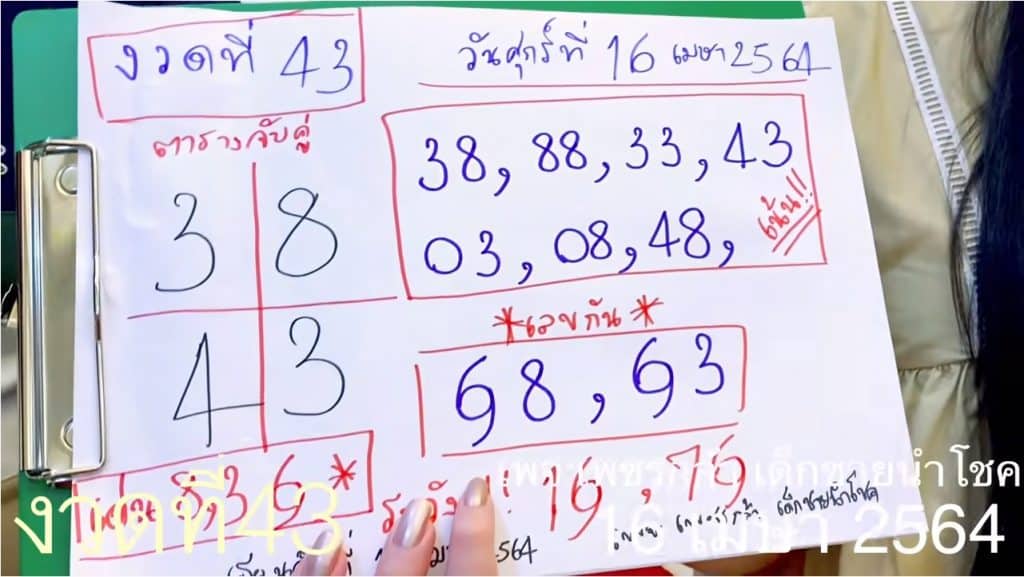 งวดที่ 43
วันศุกร์ที่ 16 เมษา 2564
ตารางจับคู่
3 8
4 3
38, 88, 33, 43
03, 08, 48,
เน้น!!
*เลขกัน*
68, 63
36 *
ระวัง!! 16, 76
2564
งวดที่43
เด็กชายนำโชค
เด็กชายนำโชค
16 เมษา 2564